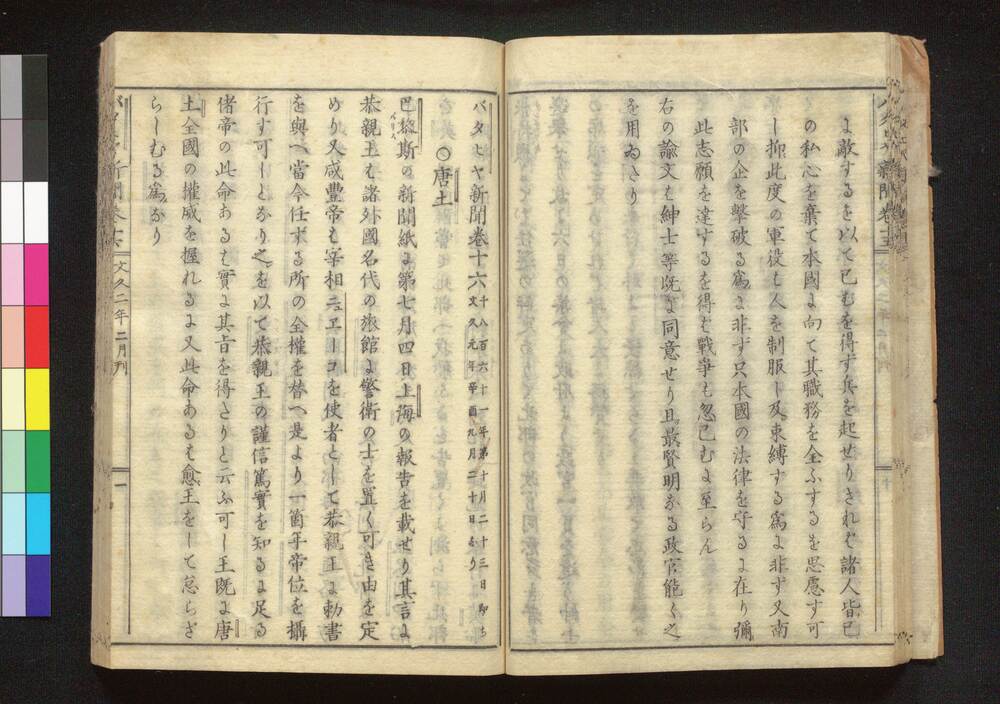 よ敵するを以て已むを得ず兵を起せりされば諸人皆己
の私心を棄て本國よ向て其職務を全ふするを思慮す可
し抑此度の軍役も人を制服し及束縛する爲よ非ず又南
部の企を擊破る爲よ非ず只本國の法律を守るよ在り彌
此志願を達するを得ば戰爭も忽已むよ至らん
右の諭文も紳士等既よ同意せり且最賢明なる政官能く之
を用ゐさり
バタビヤ新聞卷十六 千八百六十一年第十月二十三日即ち
文久元年辛酉九月二十日なり
○唐土
巴黎斯の新聞紙よ第七月四日上海の報告を載せり其言よ
恭親王も諸外國名代の旅館よ警衛の士を置く可き由を定
めり又咸豐帝も宰相ニエーコを使者として恭親王よ勅書
を與へ當今任ずる所の全權を替へ是より一箇年帝位を攝
行す可しとなり之を以て恭親王の謹信篤實を知るよ足る
偖帝の此命あるも實よ其旨を得さりと云ふ可し王既よ唐
土全國の權威を握れるよ又此命あるも愈王をして怠らざ
らしむる爲なり
文久二年二月刊
一